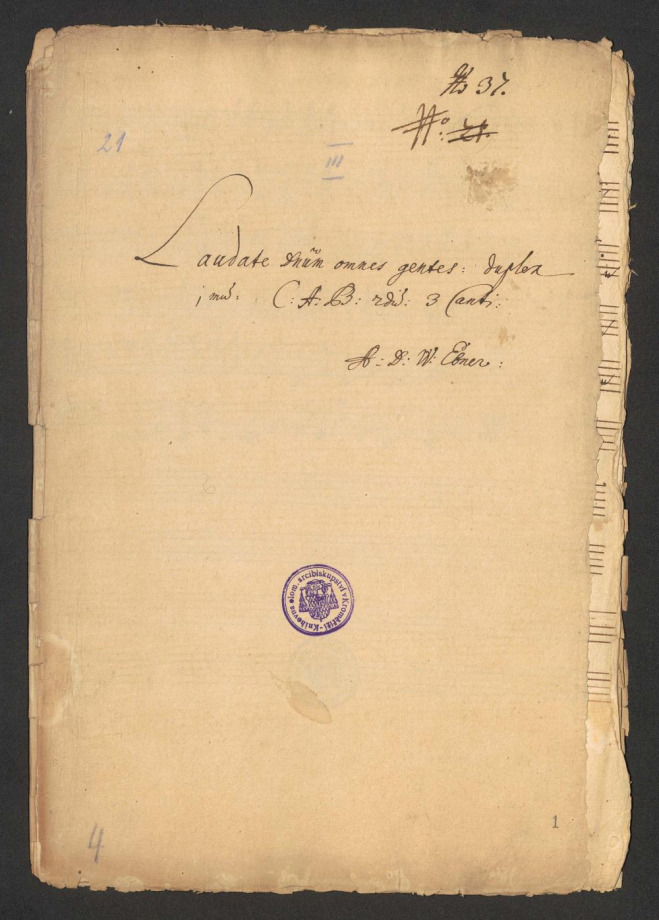 No 37.
No: 21.
21
III
Laudate Dnūm omnes gentes: duplex
j mus: C: A: B: 2dus: 3 Canti:
A: D: W: Ebner:
Knihovna olom. arcibiskupství v Kroměříži
4
1